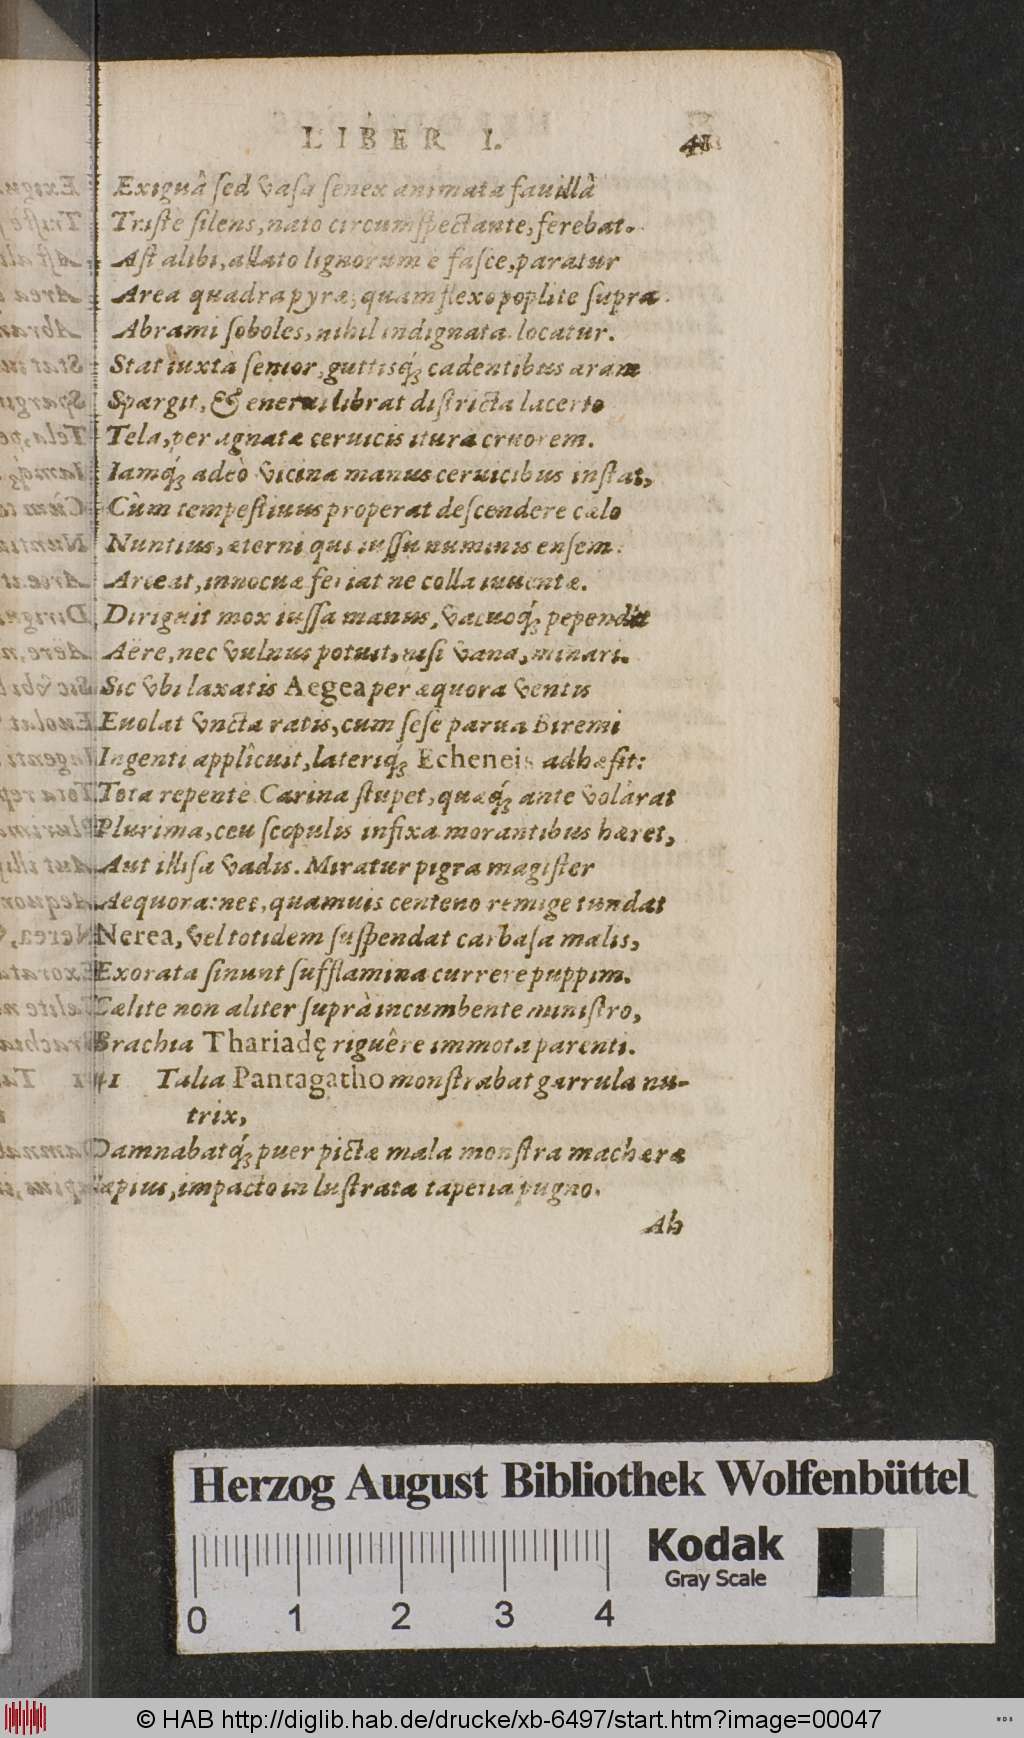 LIBER I. 41
Exiguâ sed vasa senex animata fauillâ
Triste silens, nato circumspectante, ferebat.
Ast alibi, allato lignorum è fasce, paratur
Area quadra pyræ, quam flexo poplite supra
Abrami soboles, nihil indignata locatur.
Stat iuxtà senior, guttisq́ʒ cadentibus aram
Spargit, & enerui librat districta lacerto
Tela, per agnatæ ceruicis itura cruorem.
Iamq́ʒ adeò vicina manus ceruicibus instat,
Cùm tempestiuus properat descendere cœlo
Nuntius, æterni qui iussu numinis ensem
Arceat, innocuæ feriat ne colla iuuentæ.
Diriguit mox iussa manus, vacuoq́ʒ pependit
Aëre, nec vulnus potuit, nisi vana, minari.
Sic vbi laxatis Aegea per æquora ventis
Euolat vncta ratis, cum sese parua biremi
Ingenti applicuit, lateriq́ʒ Echeneis adhæsit:
Tota repente Carina stupet, quæq́ʒ ante volârat
Plurima, ceu scopulis infixa morantibus hæret,
Aut illisa vadis. Miratur pigra magister
Aequora: nec, quamuis centeno remige tundat
Nerea, vel totidem suspendat carbasa malis,
Exorata sinunt sufflamina currere puppim.
Cælite non aliter suprà incumbente ministro,
Brachia Thariadę riguêre immota parenti.
41 Talia Pantagatho monstrabat garrula nu-
trix,
Damnabatq́ʒ puer pictæ mala monstra machæræ
Sæpius, impacto in lustrata tapetia pugno.
Ab
Herzog August Bibliothek Wolfenbüttel
Kodak
Gray Scale
0 1 2 3 4
© HAB http://diglib.hab.de/drucke/xb-6497/start.htm?image=00047